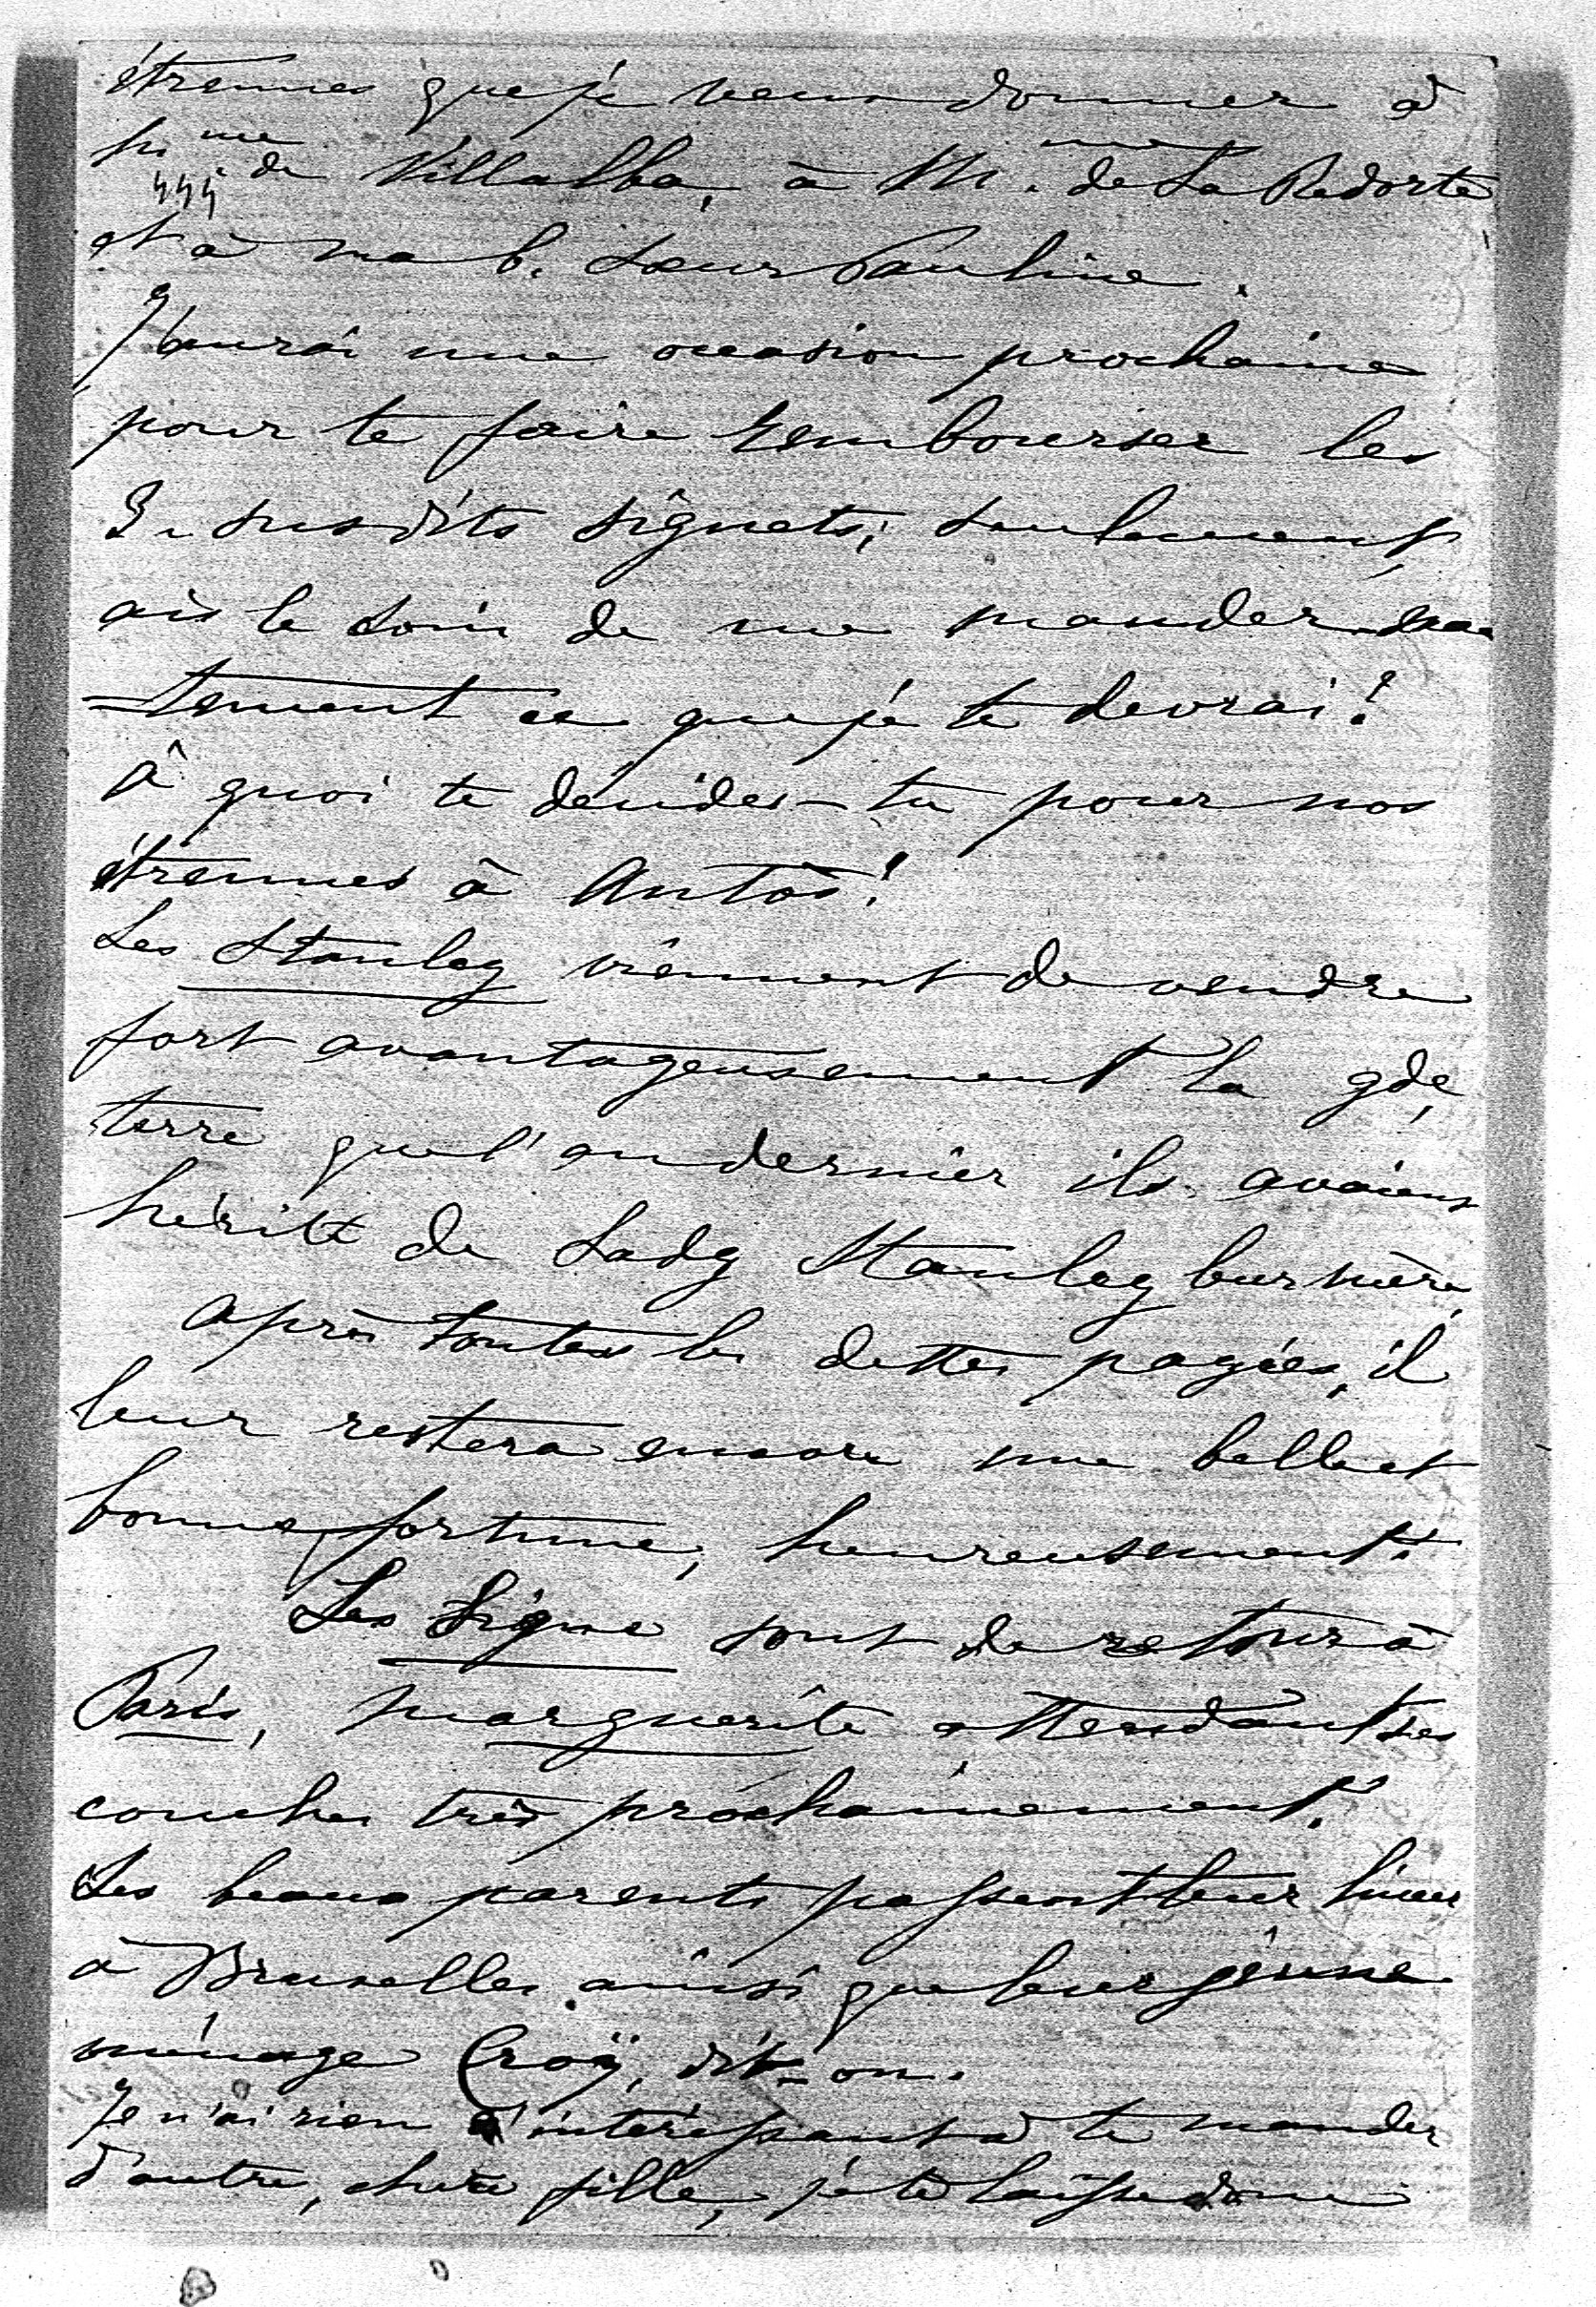 étrennes que je veux donner à
Mme de Villalba, à Mme de La Redorte
et à ma b. soeur Pauline.
J'aurai une occasion prochaine
pour te faire rembourser les
3 susdits signets, seulement,
aie le soin de me mander exac-
-tement ce que je te devrai!
à quoi te décides-tu pour nos
étrennes à Antos?
Les Stanley viennent de vendre
fort avantageusement la gde
terre que l'an dernier ils avaient
hérité de Lady Stanley leur mère,
après toutes les dettes payées, il
leur restera encore une belle et
bonne fortune, heureusement!
Les Ligne sont de retour à
Paris, Marguerite attendant ses
couches très prochainement.
Les beaux parents passent leur hiver
à Bruxelles ainsi que leur jeune
ménage Croÿ, dit-on.
Je n'ai rien d'intéressant à te mander
d'autre, chère fille, je te laisse donc